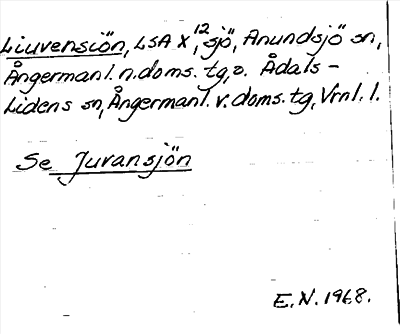 Liuvensiön, LSA X, 12 sjö, Anundsjö sn,
Ångermanl. n. doms. tg, o. Ådals-
Lidens sn, Ångermanl. v. doms. tg, Vrnl. l.
Se Juvansjön
E.N. 1968.